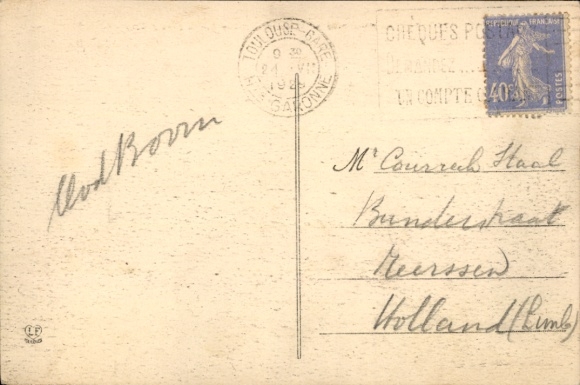 TOULOUSE-GARE
9 30
1928
GARONNE
CHÈQUES POSTAUX
DEMANDEZ
UN COMPTE
RÉPUBLIQUE FRANÇAISE
POSTES
40c
Mr Courrech Staal
Bunderstraat
Meerssen
Holland (Limb)